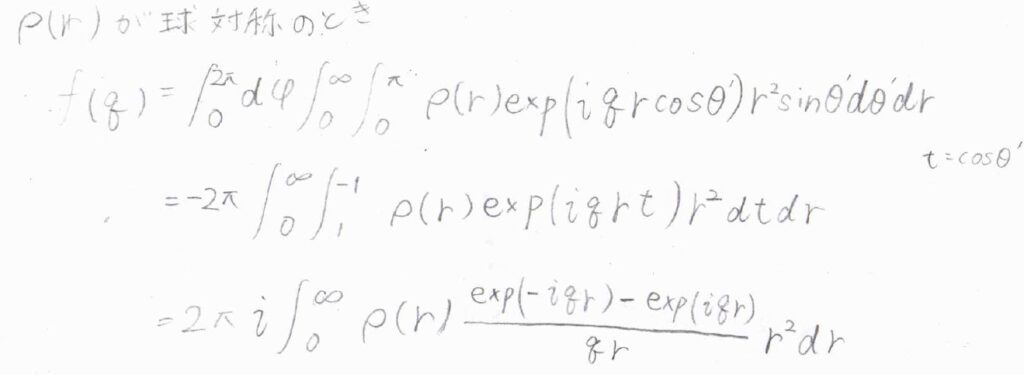 ρ(r)が球対称のとき
f(q) = ∫₀^{2π} dφ ∫₀^∞ ∫₀^π ρ(r) exp(iqr cosθ′) r² sinθ′dθ′dr
t = cosθ′
= -2π ∫₀^∞ ∫₁^{-1} ρ(r) exp(iqrt) r² dt dr
= 2πi ∫₀^∞ ρ(r) \frac{exp(-iqr) - exp(iqr)}{qr} r² dr